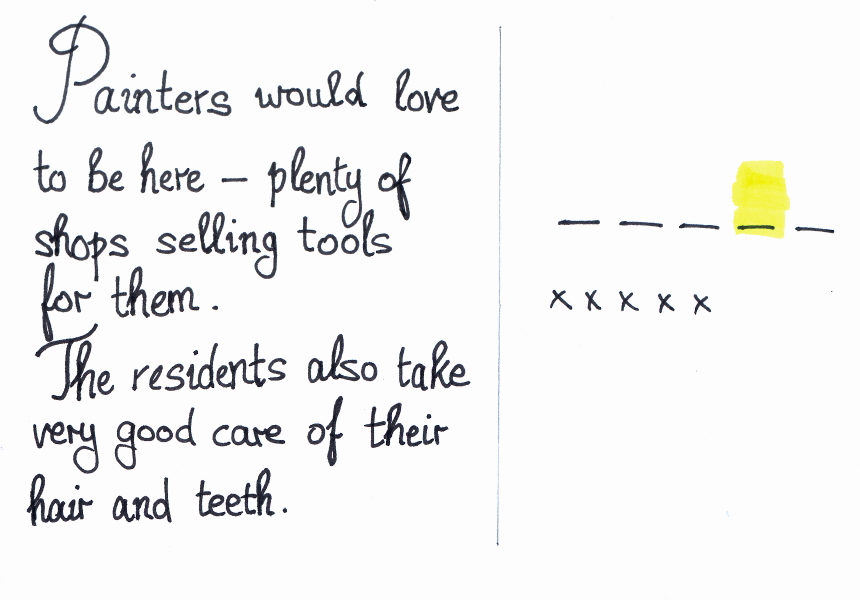 Painters would love
to be here – plenty of
shops selling tools
for them.
The residents also take
very good care of their
hair and teeth.
_ _ _ _ _
x x x x x